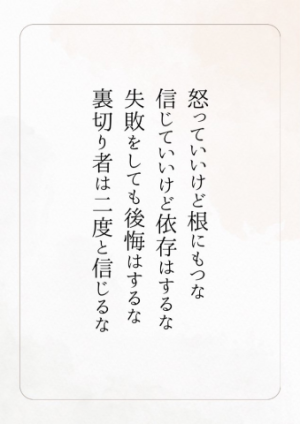 怒っていいけど根にもつな
信じていいけど依存はするな
失敗をしても後悔はするな
裏切り者は二度と信じるな